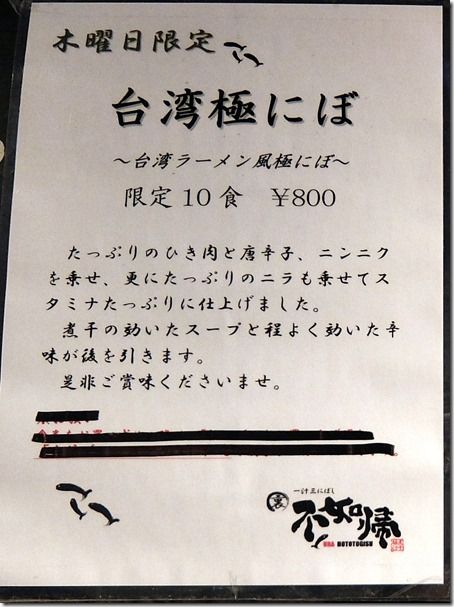 木曜日限定
台湾極にぼ
～台湾ラーメン風極にぼ～
限定10食　￥800
たっぷりのひき肉と唐辛子、ニンニク
を乗せ、更にたっぷりのニラも乗せてス
タミナたっぷりに仕上げました。
煮干の効いたスープと程よく効いた辛
味が後を引きます。
是非ご賞味くださいませ。
一汁三にぼし
裏 不如帰
URA HOTOTOGISU